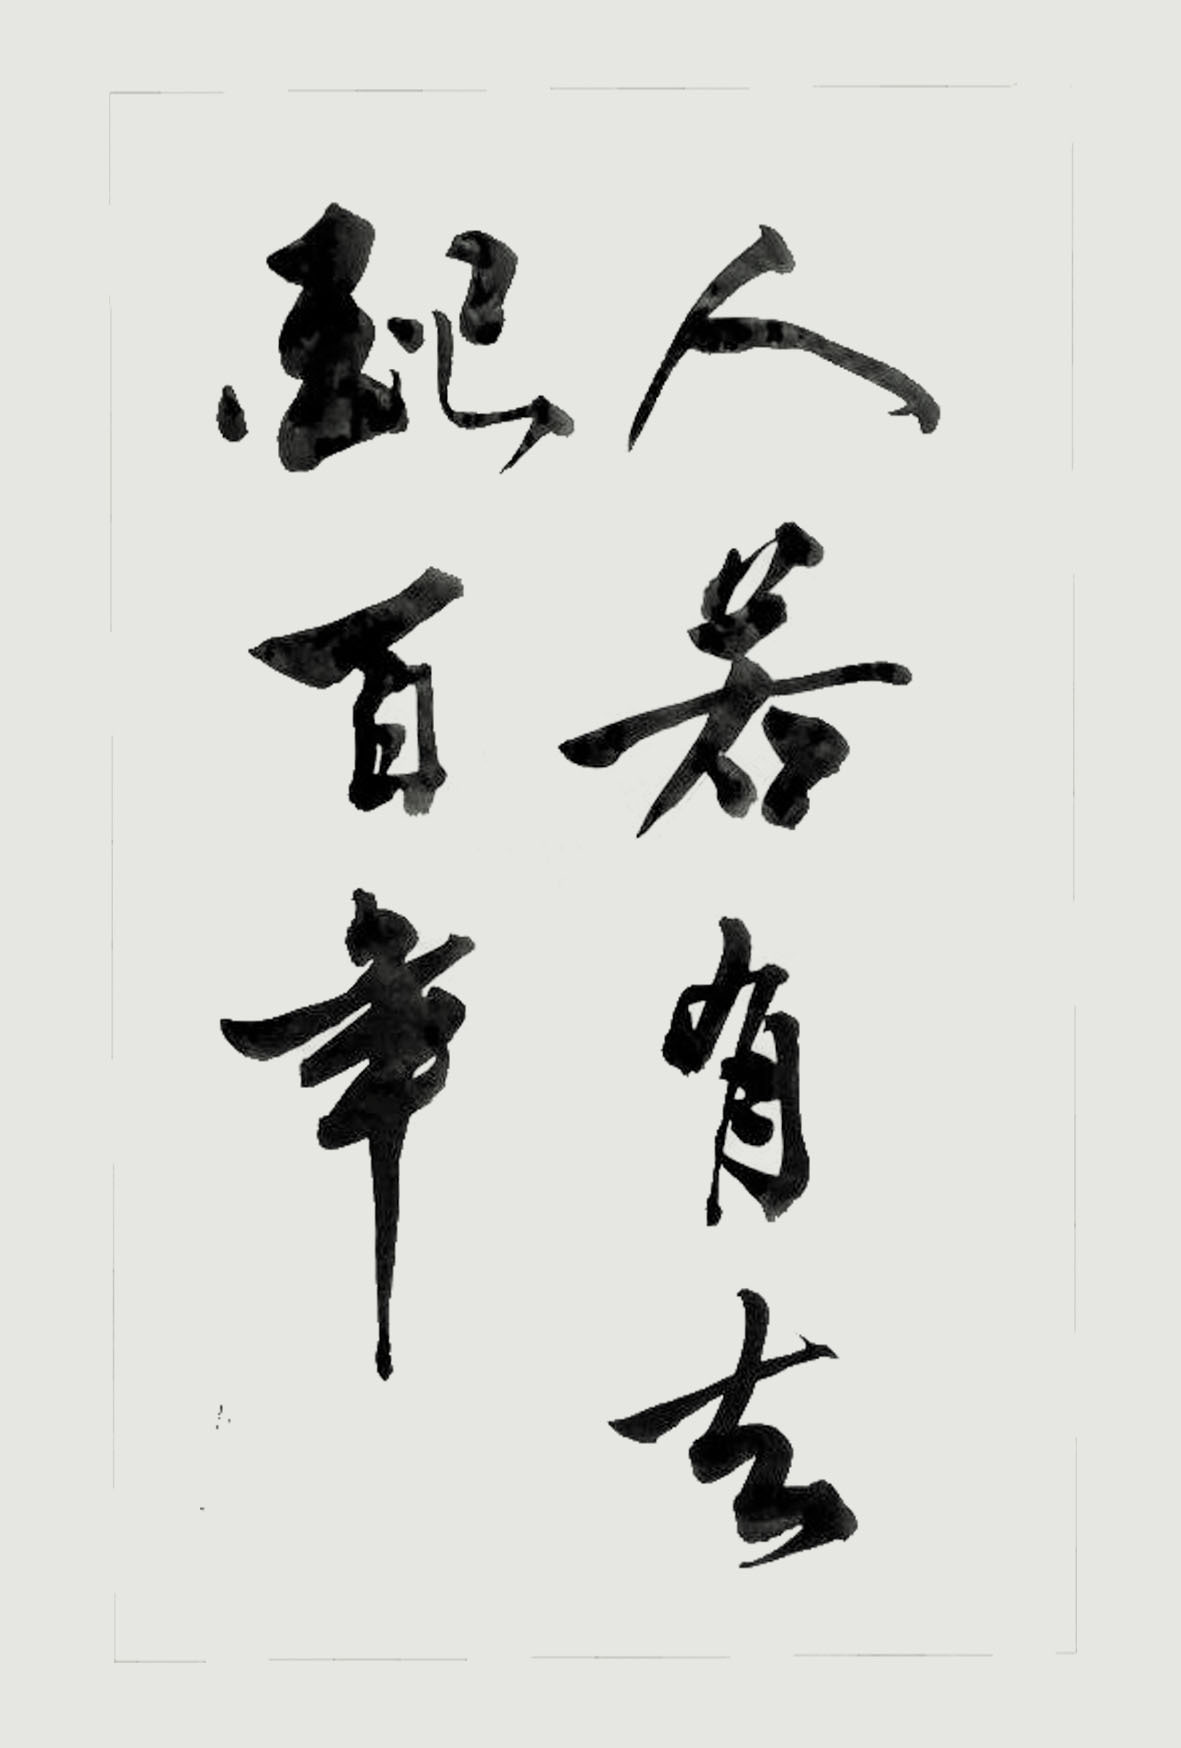 人若有志
紀百年